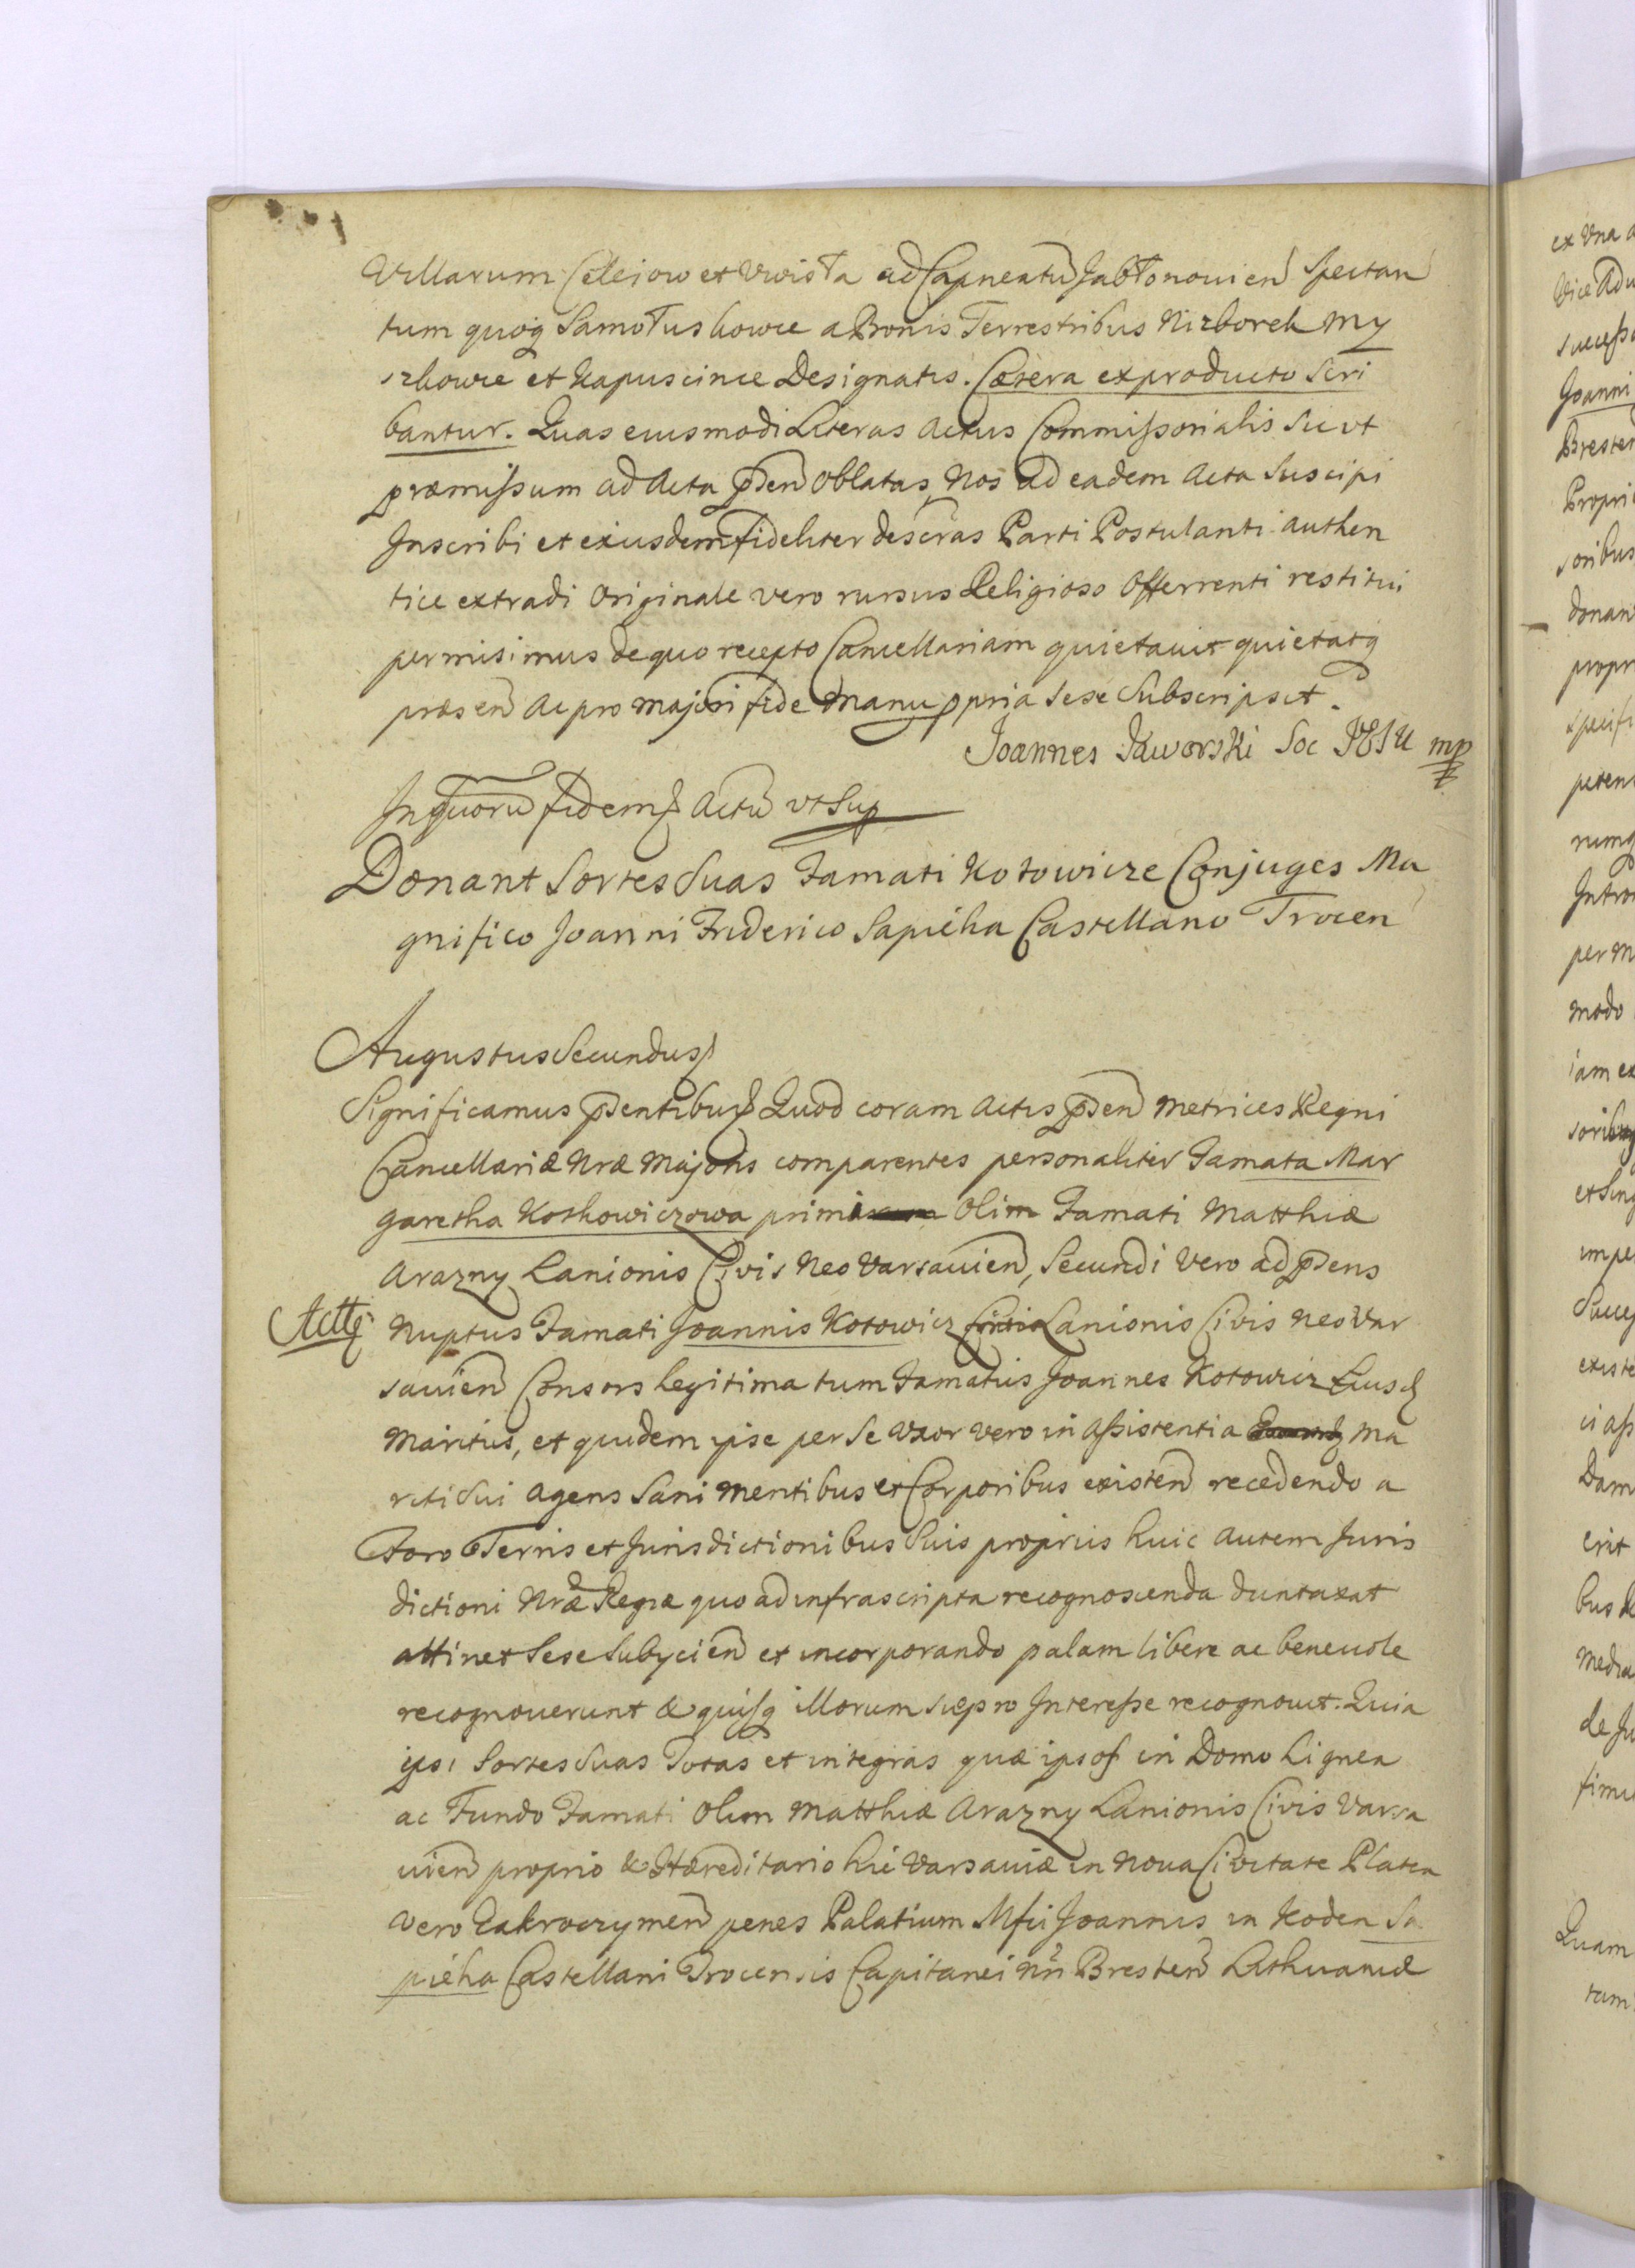 Villarum Celeiow et Uwisła ad Capneatū Jabłonouien Spectan
tum quoq Samołuskowce a Bonis Terrestribus Nizborek My
szkowce et Kapuscince Designatis. Cætera ex producto Scri
bantur. Quas eiusmodi Literas Actus Commissorialis Sicut
præmissum ad Acta pñsen Oblatas, Nos ad eadem Acta Suscipi
Inscribi et exiusdem fideliter descras Parti Postulanti authen
tice extradi Originale vero rursus Religioso Offerrenti restitui
permisimus de quo recepto Cancellariam quietauit quietatq
præsen ac pro majori fide manu ppria sese Subscripsit.
Joannes Jaworski Soc JESU mp
In quorū fidem Actū vt Sup
Donant Sortes Suas Famati Kotowicze Conjuges Ma
gnifico Joanni Friderico Sapieha Castellano Trocen
Augustus Secundus
Significamus pñsentibus Quod coram Actis pñsen Metrices Regni
Cancellariæ Nræ Majoris comparentes personaliter Famata Mar
garetha Kothowiczowa primi olim Famati Matthiæ
Arazny Lanionis Civis Neo Varsauien, Secundi vero ad pñsens
Nuptus Famati Joannis Kotowicz Lanionis Civis Neo Var
sauien Consors legitima tum Famatus Joannes Kotowicz Eius
Maritus, et quidem ipse per se Uxor vero in assistentia Ma
riti Sui agens Sani mentibus et Corporibus existen recedendo a
Foro Terris et Jurisdictionibus Suis propriis huic autem Juris
dictioni Nræ Regiæ quo ad infrascripta recognoscenda duntaxat
attinet Sese Subycien et incorporando palam libere ac beneuole
recognouerunt & quisq illorum sua pro Interesse recognouit. Quia
ipsi Sortes Suas Totas et integras quæ ipsos in Domo Lignea
ac Fundo Famati Olim Matthiæ Arazny Lanionis Civis Varsa
uien proprio & Hæreditario hic Varsauiæ in Noua Civitate Platea
vero Zakroczymen penes Palatium Mfci Joannis in Koden Sa
pieha Castellani Trocensis Capitanei Nri Bresten Lithuaniæ